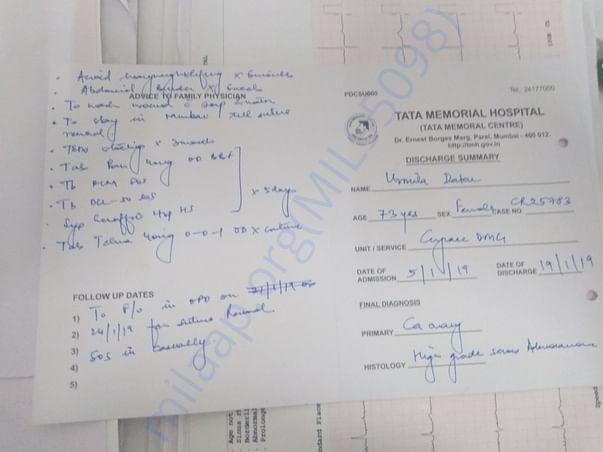 Avoid heavyweight lifting x 6 months
Abdominal Binder x 6
ADVICE TO FAMILY PHYSICIAN
To wash wound c soap & water
To stay in Mumbai till suture
removal
TEDs stockings x 3 months
Tab Pan 40mg OD BBF
Tb PCM SOS
Tb SOS
x 5 days
Syp HS
Tab Telma 40mg 0-0-1 OD x continue
FOLLOW UP DATES
1) To F/U in OPD on
2) 24/1/19 for suture Removal
3) SOS in casualty.
4)
5)
PDCSU000
Tel.: 24177000
TATA MEMORIAL HOSPITAL
(TATA MEMORAL CENTRE)
Dr. Ernest Borges Marg, Parel, Mumbai - 400 012.
http://tmh.gov.in
DISCHARGE SUMMARY
NAME Urmila Datar
AGE 73 yrs SEX Female CASE NO. CR25783
UNIT / SERVICE Gynaec DMG
DATE OF ADMISSION 5/1/19 DATE OF DISCHARGE 19/1/19
FINAL DIAGNOSIS
PRIMARY Ca ovary
HISTOLOGY High grade serous Adenocarcinoma
Age not
Sinus
Borderli
Abnormal
Prolonge
ndard
Speed
milaap.org(MIL 5098)